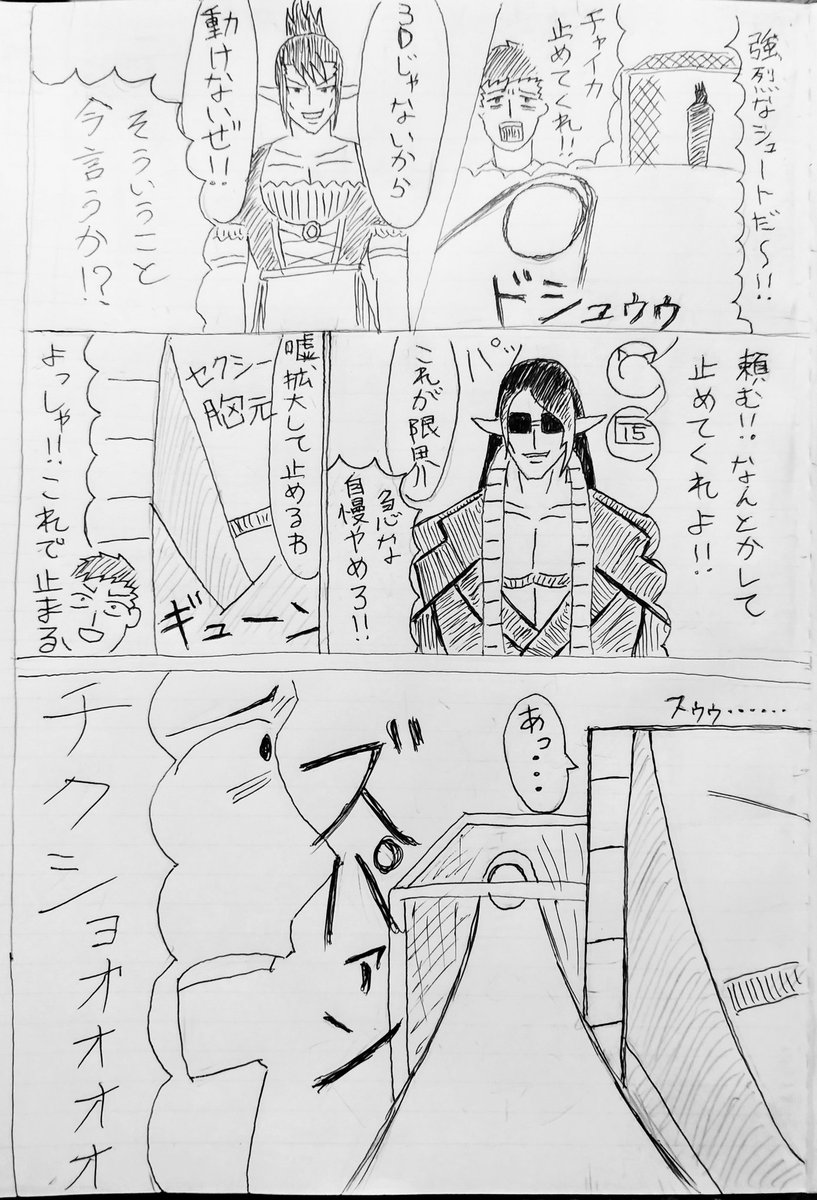 強烈なシュートだ〜!!
チャイカ
止めてくれ!!
ドシュゥゥ
3Dじゃないから
動けないぜ!!
そういうこと
今言うか!?
頼む!!なんとかして
止めてくれよ!!
15
パッ
これが限界!!
急な
自慢やめろ!!
嘘、拡大して止めるわ
セクシー
胸元
ギューン
よっしゃ!!これで止まる、
スゥゥ・・・・・・
あっ・・・
ズパァン
チクショオオオオオ